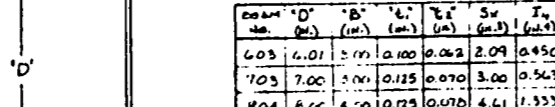 BEAM NO. "D" (IN.) "B" (IN.) "t₁" (IN.) "t₂" (IN) Sx (IN.3) Iy (IN.4)
603 6.01 3.00 0.100 0.062 2.09 0.450
'D' 703 7.00 3.00 0.125 0.070 3.00 0.563
804 4.00 0.125 0.070 4.61 1.333